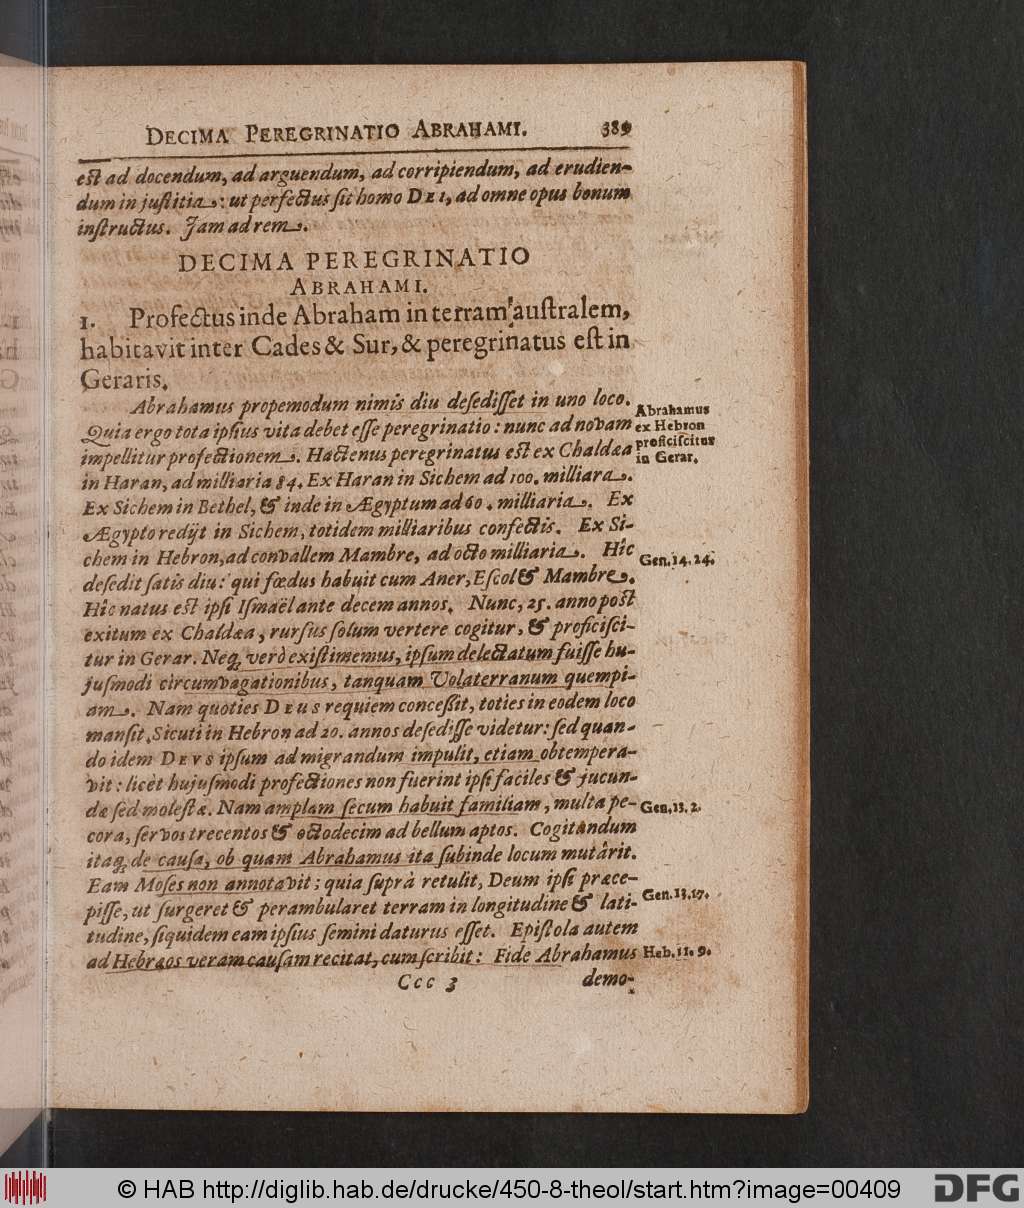 DECIMA PEREGRINATIO ABRAHAMI. 389
est ad docendum, ad arguendum, ad corripiendum, ad erudien-
dum in justitia: ut perfectus sit homo DEI, ad omne opus bonum
instructus. Jam ad rem.
DECIMA PEREGRINATIO
ABRAHAMI.
1. Profectus inde Abraham in terram australem,
habitavit inter Cades & Sur, & peregrinatus est in
Geraris.
Abrahamus propemodum nimis diu desedisset in uno loco.
Quia ergo tota ipsius vita debet esse peregrinatio: nunc ad novam
impellitur profectionem. Hactenus peregrinatus est ex Chaldæa
in Haran, ad milliaria 84. Ex Haran in Sichem ad 100. milliara.
Ex Sichem in Bethel, & inde in Ægyptum ad 60. milliaria. Ex
Ægypto redijt in Sichem, totidem milliaribus confectis. Ex Si-
chem in Hebron, ad convallem Mambre, ad octo milliaria. Hîc
desedit satis diu: qui fœdus habuit cum Aner, Escol & Mambre.
Hîc natus est ipsi Ismaël ante decem annos. Nunc, 25. anno post
exitum ex Chaldæa, rursus solum vertere cogitur, & proficisci-
tur in Gerar. Neq; verò existimemus, ipsum delectatum fuisse hu-
jusmodi circumvagationibus, tanquam Volaterranum quempi-
am. Nam quoties DEUS requiem concessit, toties in eodem loco
mansit. Sicuti in Hebron ad 20. annos desedisse videtur: sed quan-
do idem DEVS ipsum ad migrandum impulit, etiam obtempera-
vit: licèt hujusmodi profectiones non fuerint ipsi faciles & jucun-
dæ sed molestæ. Nam amplam secum habuit familiam, multa pe-
cora, servos trecentos & octodecim ad bellum aptos. Cogitandum
itaq; de causa, ob quam Abrahamus ita subinde locum mutârit.
Eam Moses non annotavit; quia suprà retulit, Deum ipsi præce-
pisse, ut surgeret & perambularet terram in longitudine & lati-
tudine, siquidem eam ipsius semini daturus esset. Epistola autem
ad Hebræos veram causam recitat, cum scribit: Fide Abrahamus
Ccc 3 demo-
Abrahamus
ex Hebron
proficiscitur
in Gerar.
Gen. 14. 24.
Gen. 13. 2.
Gen. 13. 17.
Heb. 11. 9.
© HAB http://diglib.hab.de/drucke/450-8-theol/start.htm?image=00409
DFG